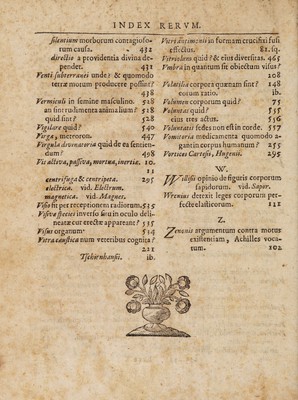 INDEX RERVM.
silentium morborum contagioso-
rum causa. 432
directio a providentia divina de-
pender. 431
Venti subterranei unde? & quomodo
terræ motum producere possint?
438
Vermiculi in semine masculino. 528
an sint rudimenta animalium? 528
quid sint? 528
Vigilare quid? 540
Virga, meteoron. 447
Virgula divinatoria quid de ea sentien-
dum? 498
Vis activa, passiva, mortua, inertia. 10.
11
centrifuga & centripeta 295
electrica. vid. Electrum.
magnetica. vid. Magnes.
Visio fit per receptionem radiorum. 535
Visiva species inverso situ in oculo deli-
neatæ cur erectæ appareant? 535
Visus organum 514
Vitra caustica num veteribus cognita?
221
Tschirnhausii. ib.
Vitri antimonii in formam crucifixi fusi
effectus. 81. sq.
Vitriolum quid? & ejus diversitas. 465
Umbra in quantum sit objectum visus?
108
Volatilia corpora quænam sint? 148
eorum ratio. ib.
Volumen corporum quid? 75
Voluntas quid? 555
ejus tres actus. 556
Voluntatis sedes non est in corde. 557
Vomitoria medicamenta quomodo a-
gant in corpus humanum? 255
Vortices Cartesii, Hugenii. 295
W.
Willisii opinio de figuris corporum
sapidorum. vid. Sapor.
Wrenius detexit leges corporum per-
fecte elasticorum. 121
Z.
Zenonis argumentum contra motus
existentiam, Achilles voca-
tum. 102